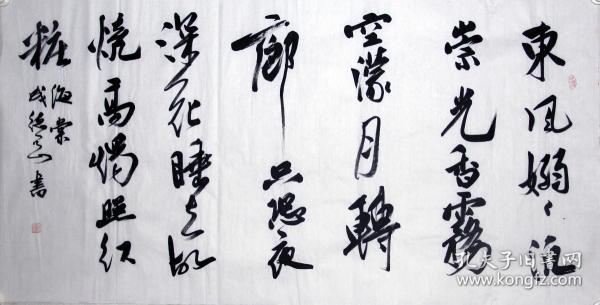 東风嫋々泛
崇光香霧
空濛月轉
廊只恐夜
深花睡去故
燒高燭照红
粧
海棠
書
孔夫子旧书网
www.kongfz.com